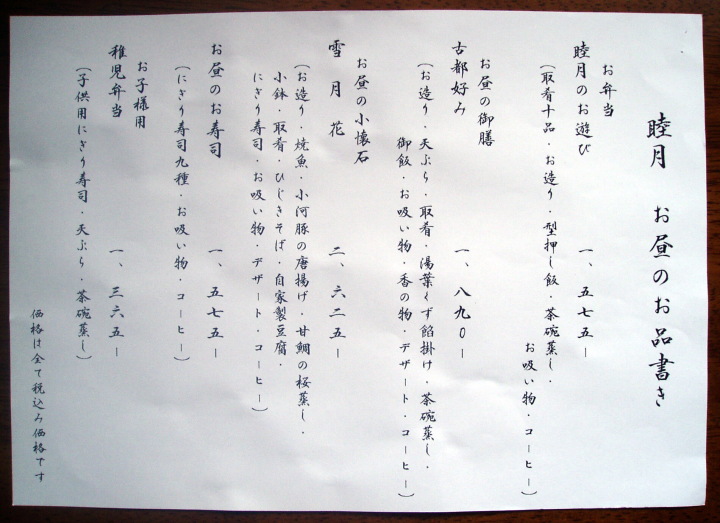 睦月　お昼のお品書き
お弁当
睦月のお遊び　一、五七五ー
（取肴十品・お造り・型押し飯・茶碗蒸し・
お吸い物・コーヒー）
お昼の御膳
古都好み　一、八九〇ー
（お造り・天ぷら・取肴・湯葉くず餡掛け・茶碗蒸し・
御飯・お吸い物・香の物・デザート・コーヒー）
お昼の小懐石
雪月花　二、六二五ー
（お造り・焼魚・小河豚の唐揚げ・甘鯛の桜蒸し・
小鉢・取肴・ひじきそば・自家製豆腐・
にぎり寿司・お吸い物・デザート・コーヒー）
お昼のお寿司　一、五七五ー
（にぎり寿司九種・お吸い物・コーヒー）
お子様用
稚児弁当　一、三六五ー
（子供用にぎり寿司・天ぷら・茶碗蒸し）
価格は全て税込み価格です